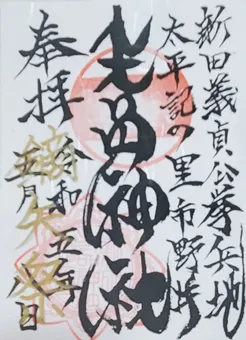 新田義貞公挙兵地
太平記の里市野井
生品神社
奉拝
令和五年
鏑矢祭
五月八日